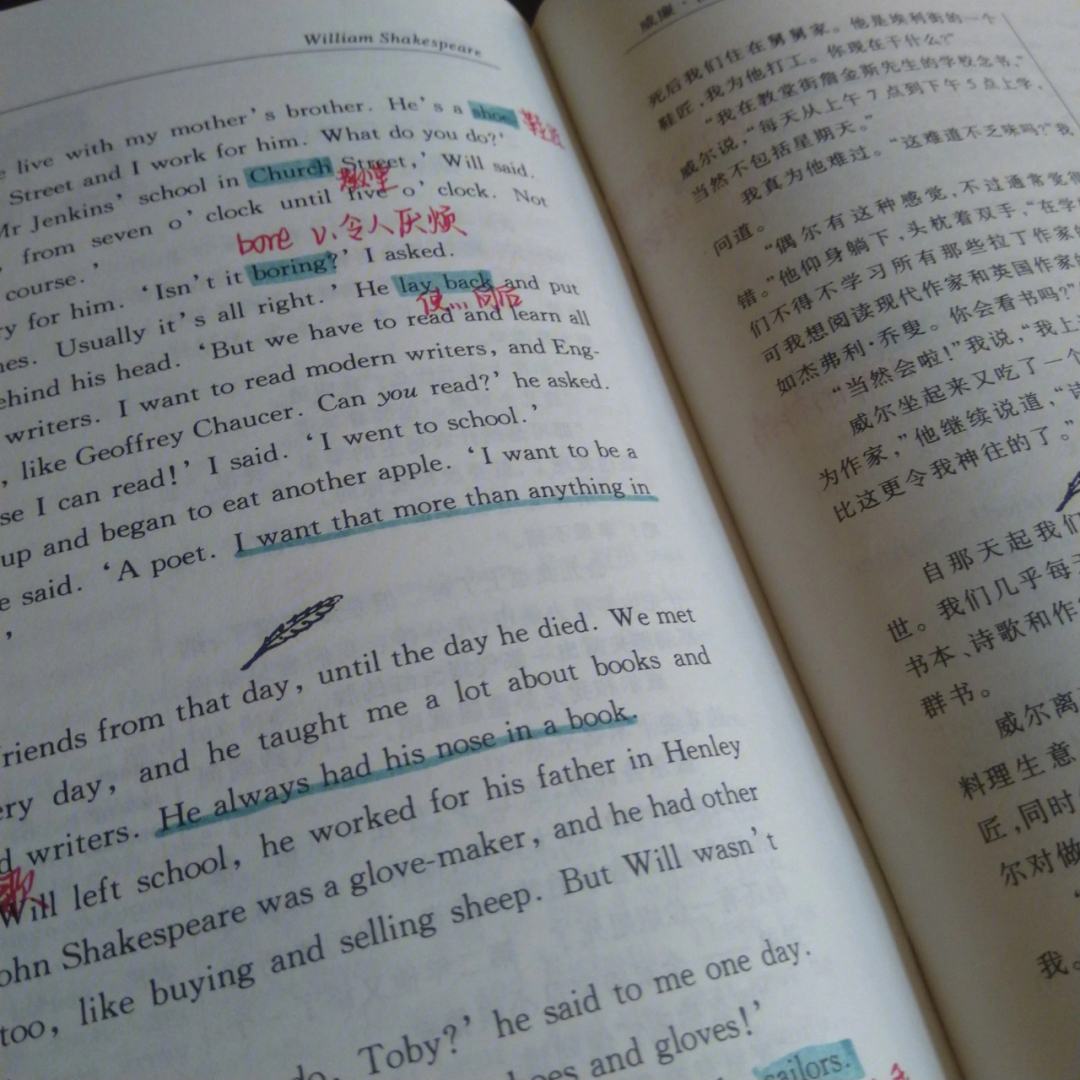 William Shakespeare
live with my mother's brother. He's a shoe
鞋匠
Street and I work for him. What do you do?'
Mr Jenkins' school in Church Street,' Will said.
教堂
from seven o' clock until five o' clock. Not
course.'
bore v.令人厌烦
for him. 'Isn't it boring?' I asked.
Usually it's all right.' He lay back and put
使...向后
his head. 'But we have to read and learn all
writers. I want to read modern writers, and Eng-
, like Geoffrey Chaucer. Can you read?' he asked.
I can read!' I said. 'I went to school.'
up and began to eat another apple. 'I want to be a
said. 'A poet. I want that more than anything in
'
from that day, until the day he died. We met
day, and he taught me a lot about books and
writers. He always had his nose in a book.
歌
Will left school, he worked for his father in Henley
Shakespeare was a glove-maker, and he had other
too, like buying and selling sheep. But Will wasn't
Toby?' he said to me one day.
and gloves!'
sailors.
威廉·
死后我们住在舅舅家。他是埃利街的一个
鞋匠,我为他打工。你现在干什么?"
"我在教堂街詹金斯先生的学校念书,"
威尔说,"每天从上午7点到下午5点上学,
当然不包括星期天。"
我真为他难过。"这难道不乏味吗?"我
问道。
"偶尔有这种感觉,不过通常觉得
错。"他仰身躺下,头枕着双手,"在学
们不得不学习所有那些拉丁作家
可我想阅读现代作家和英国作家
如杰弗利·乔叟。你会看书吗?"
"当然会啦!"我说,"我上
威尔坐起来又吃了一个
为作家,"他继续说道,"诗
比这更令我神往的了。"
自那天起我们
世。我们几乎每
书本、诗歌和作
群书。
威尔离
料理生意
匠,同时
尔对做
我。